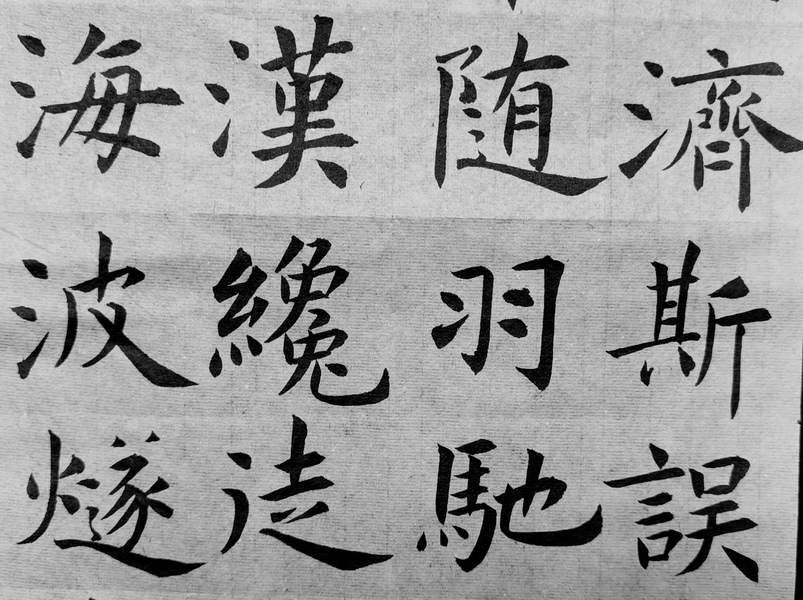 濟斯誤
随羽馳
漢纔徒
海波燧